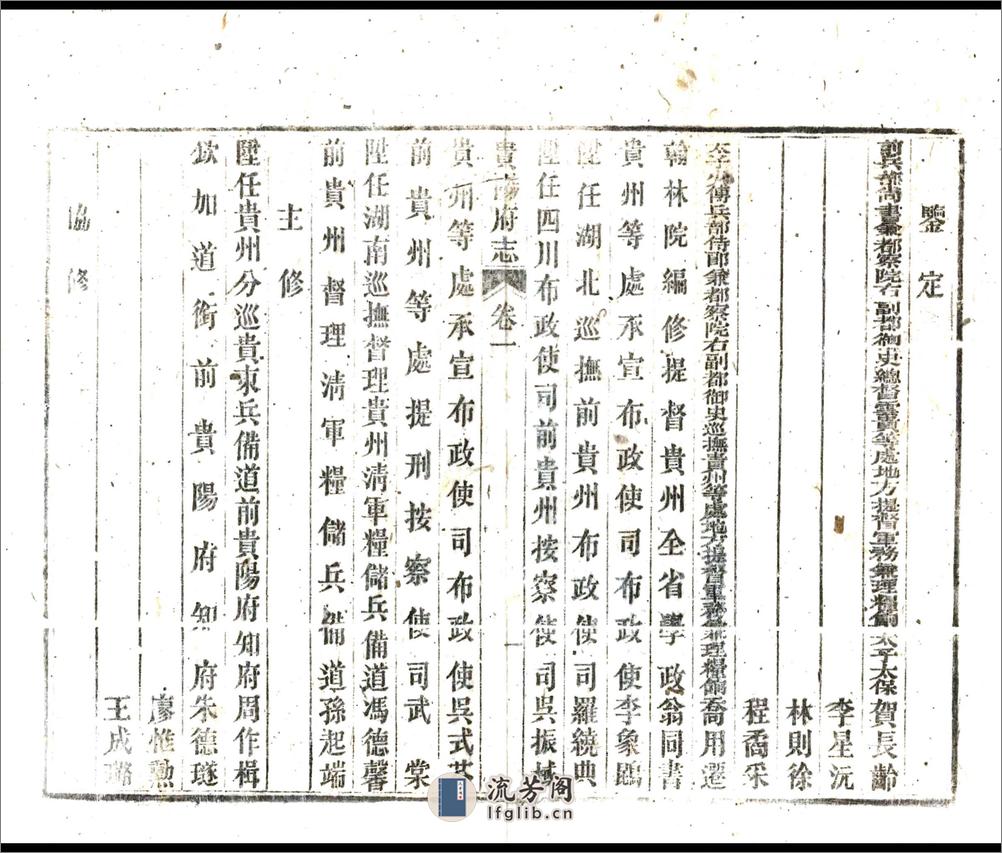 鑒定
前兵部尚書兼都察院右副都御史總督雲貴等處地方提督軍務兼理糧餉太子太保賀長齡
李星沅
林則徐
程矞采
太子少傅兵部侍郎兼都察院右副都御史巡撫貴州等處地方提督軍務兼理糧餉喬用遷
翰林院編修提督貴州全省學政翁同書
貴州等處承宣布政使司布政使李象鵾
陞任湖北巡撫前貴州布政使司羅繞典
陞任四川布政使司前貴州按察使司吳振棫
貴陽府志 卷一 一
貴州等處承宣布政使司布政使吳式芬
前貴州等處提刑按察使司武棠
陞任湖南巡撫督理貴州清軍糧儲兵備道馮德馨
前貴州督理清軍糧儲兵備道孫起端
主修
陞任貴州分巡貴東兵備道前貴陽府知府周作楫
欽加道銜前貴陽府知府朱德璲
廖惟勲
王成璐
協修
流芳阁
lfglib.cn